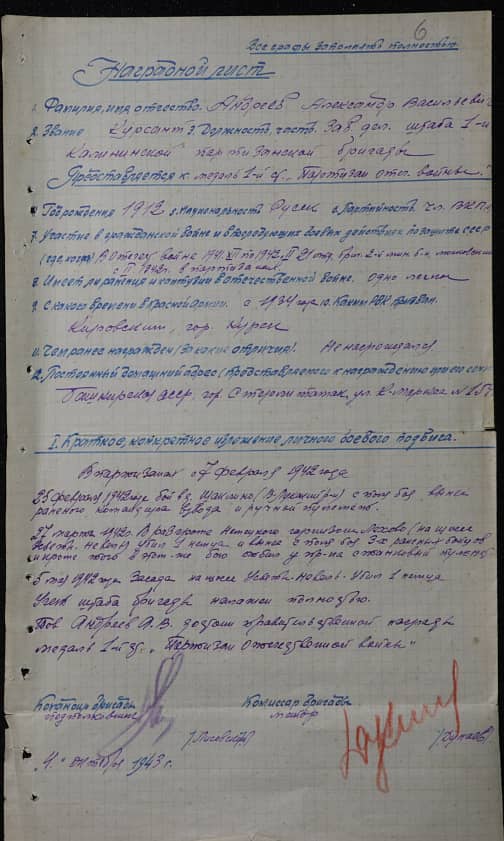 6
Все графы заполнять полностью.
Наградной лист
1. Фамилия, имя, отчество. Андреев Александр Васильевич
2. Звание Курсант 3. Должность, часть. Зав. дел. штаба 1-й
Калининской партизанской бригады
Представляется к медаль 1-й ст. „Партизан отеч. войны."
4. Год рождения 1912 5. Национальность Русск 6. Партийность. Чл. ВКП/
7. Участие в гражданской войне и последующих боевых действиях по защите СССР
(где, когда) В Отеч. войне 1941. XII по 1942. II 21 отд.
с II 1942г. в партизанах.
8. Имеет ли ранения и контузии в отечественной войне. одно легкое
9. С какого времени в Красной армии. с 1934 года 10. Каким РВК призван.
Кировский, гор. Курск
11. Чем ранее награжден (за какие отличия). Не награждался
12. Постоянный домашний адрес (представляемого к награждению и его семьи
Башкирская АССР, гор. Стерлитамак, ул. К-Маркса № 157
I. Краткое, конкретное изложение личного боевого подвига.
В партизанах с 7 февраля 1942 года
25 февраля 1942 года бой в д. с поля боя вынес
раненого командира взвода и ручной пулемет.
27 марта 1942г. В разгроме немецкого гарнизона Лехово (на шоссе
Невель) убил 1 немца и вынес с поля боя 3-х раненых бойцов
и кроме того в этом же бою отбил у пр-ка станковый пулемет
5 мая 1942 года Засада на шоссе Усвяты-Невель. Убил 1 немца
Учет штаба бригады налажен полностью.
Тов Андреев А. В. достоин правительственной награды
медаль 1-й ст. „Партизан Отечественной войны"
Командир бригады
подполковник
Комиссар бригады
майор
„4." октября 1943 г.